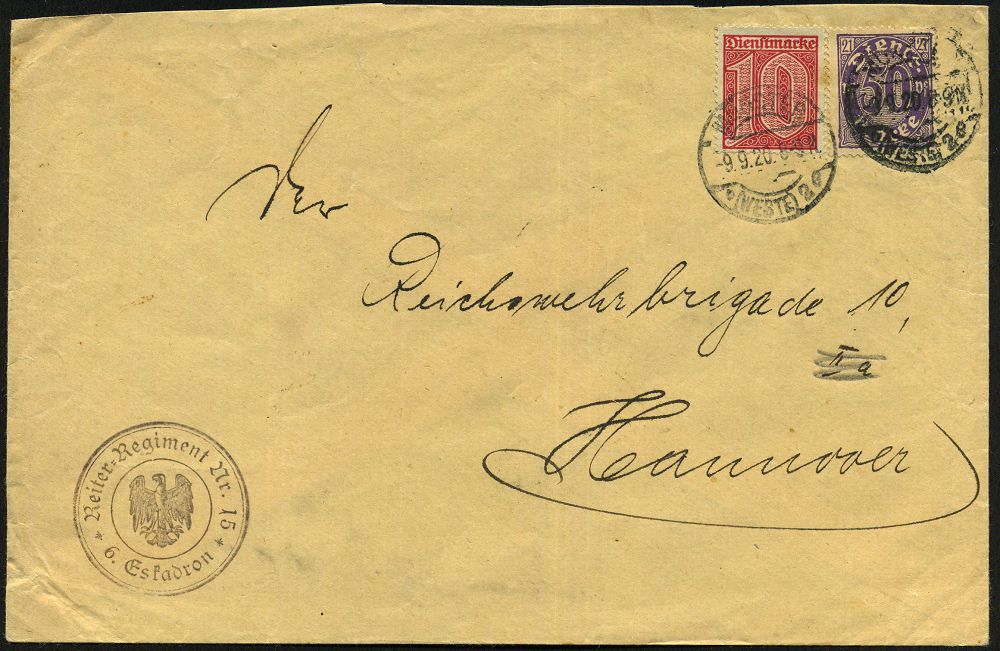 Dienstmarke
10
21 21
30
-9.9.20.
(WESTF) 2 e
9.20.8-9V
(WESTF) 2 e
Der
Reichswehrbrigade 10,
II a
Hannover
* Reiter=Regiment Nr. 15 *
6. Eskadron